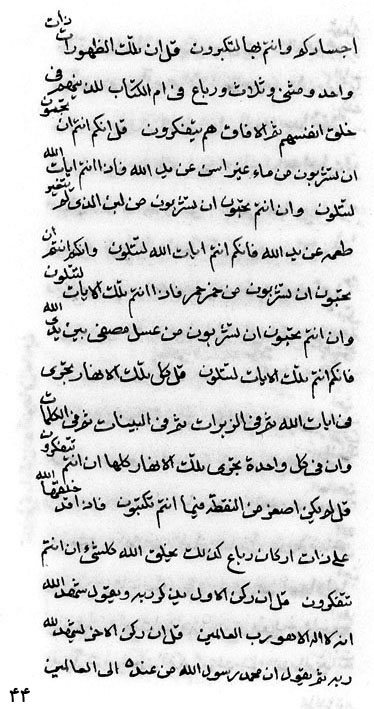 اجسادكم وانتم بها لتكبرون قل ان تلك الظهورات ذات
واحد ومثنى وثلاث ورباع فى ام الكتاب للذينهم فى
خلق انفسهم ثم الافاق هم يتفكرون قل انكم انتم ان تحبون
ان تشربون من ماء غير اسن عن يد الله فاذا انتم ايات الله
لتتلون وان انتم تحبون ان تشربون من لبن الذى لم يتغير
طعمه عن يد الله فانكم انتم ايات الله لتتلون وانكم انتم ان
تحبون ان تشربون من خمر حمر فاذا انتم تلك الايات لتتلون
وان انتم تحبون ان تشربون من عسل مصفى بين يدى الله
فانكم انتم تلك الايات لتتلون قل كل تلك الانهار يجرى
فى ايات الله ثم فى الزبرات ثم فى البينات ثم فى الكلمات
وان فى كل واحدة تجرى تلك الانهار كلها ان انتم تتفكرون
قل لم يكن اصغر من النقطة فيما انتم تكتبون فاذا قد خلقها الله
على ذات اركان رباع كذلك يخلق الله كلشئ ان انتم
تتفكرون قل ان ركن الاول يذكر ربه ويقول شهد الله
انه لا اله الا هو رب العالمين قل ان ركن الاخر ليشهد لله
ربه ثم يقول ان محمد رسول الله من عنده الى العالمين
۴۴